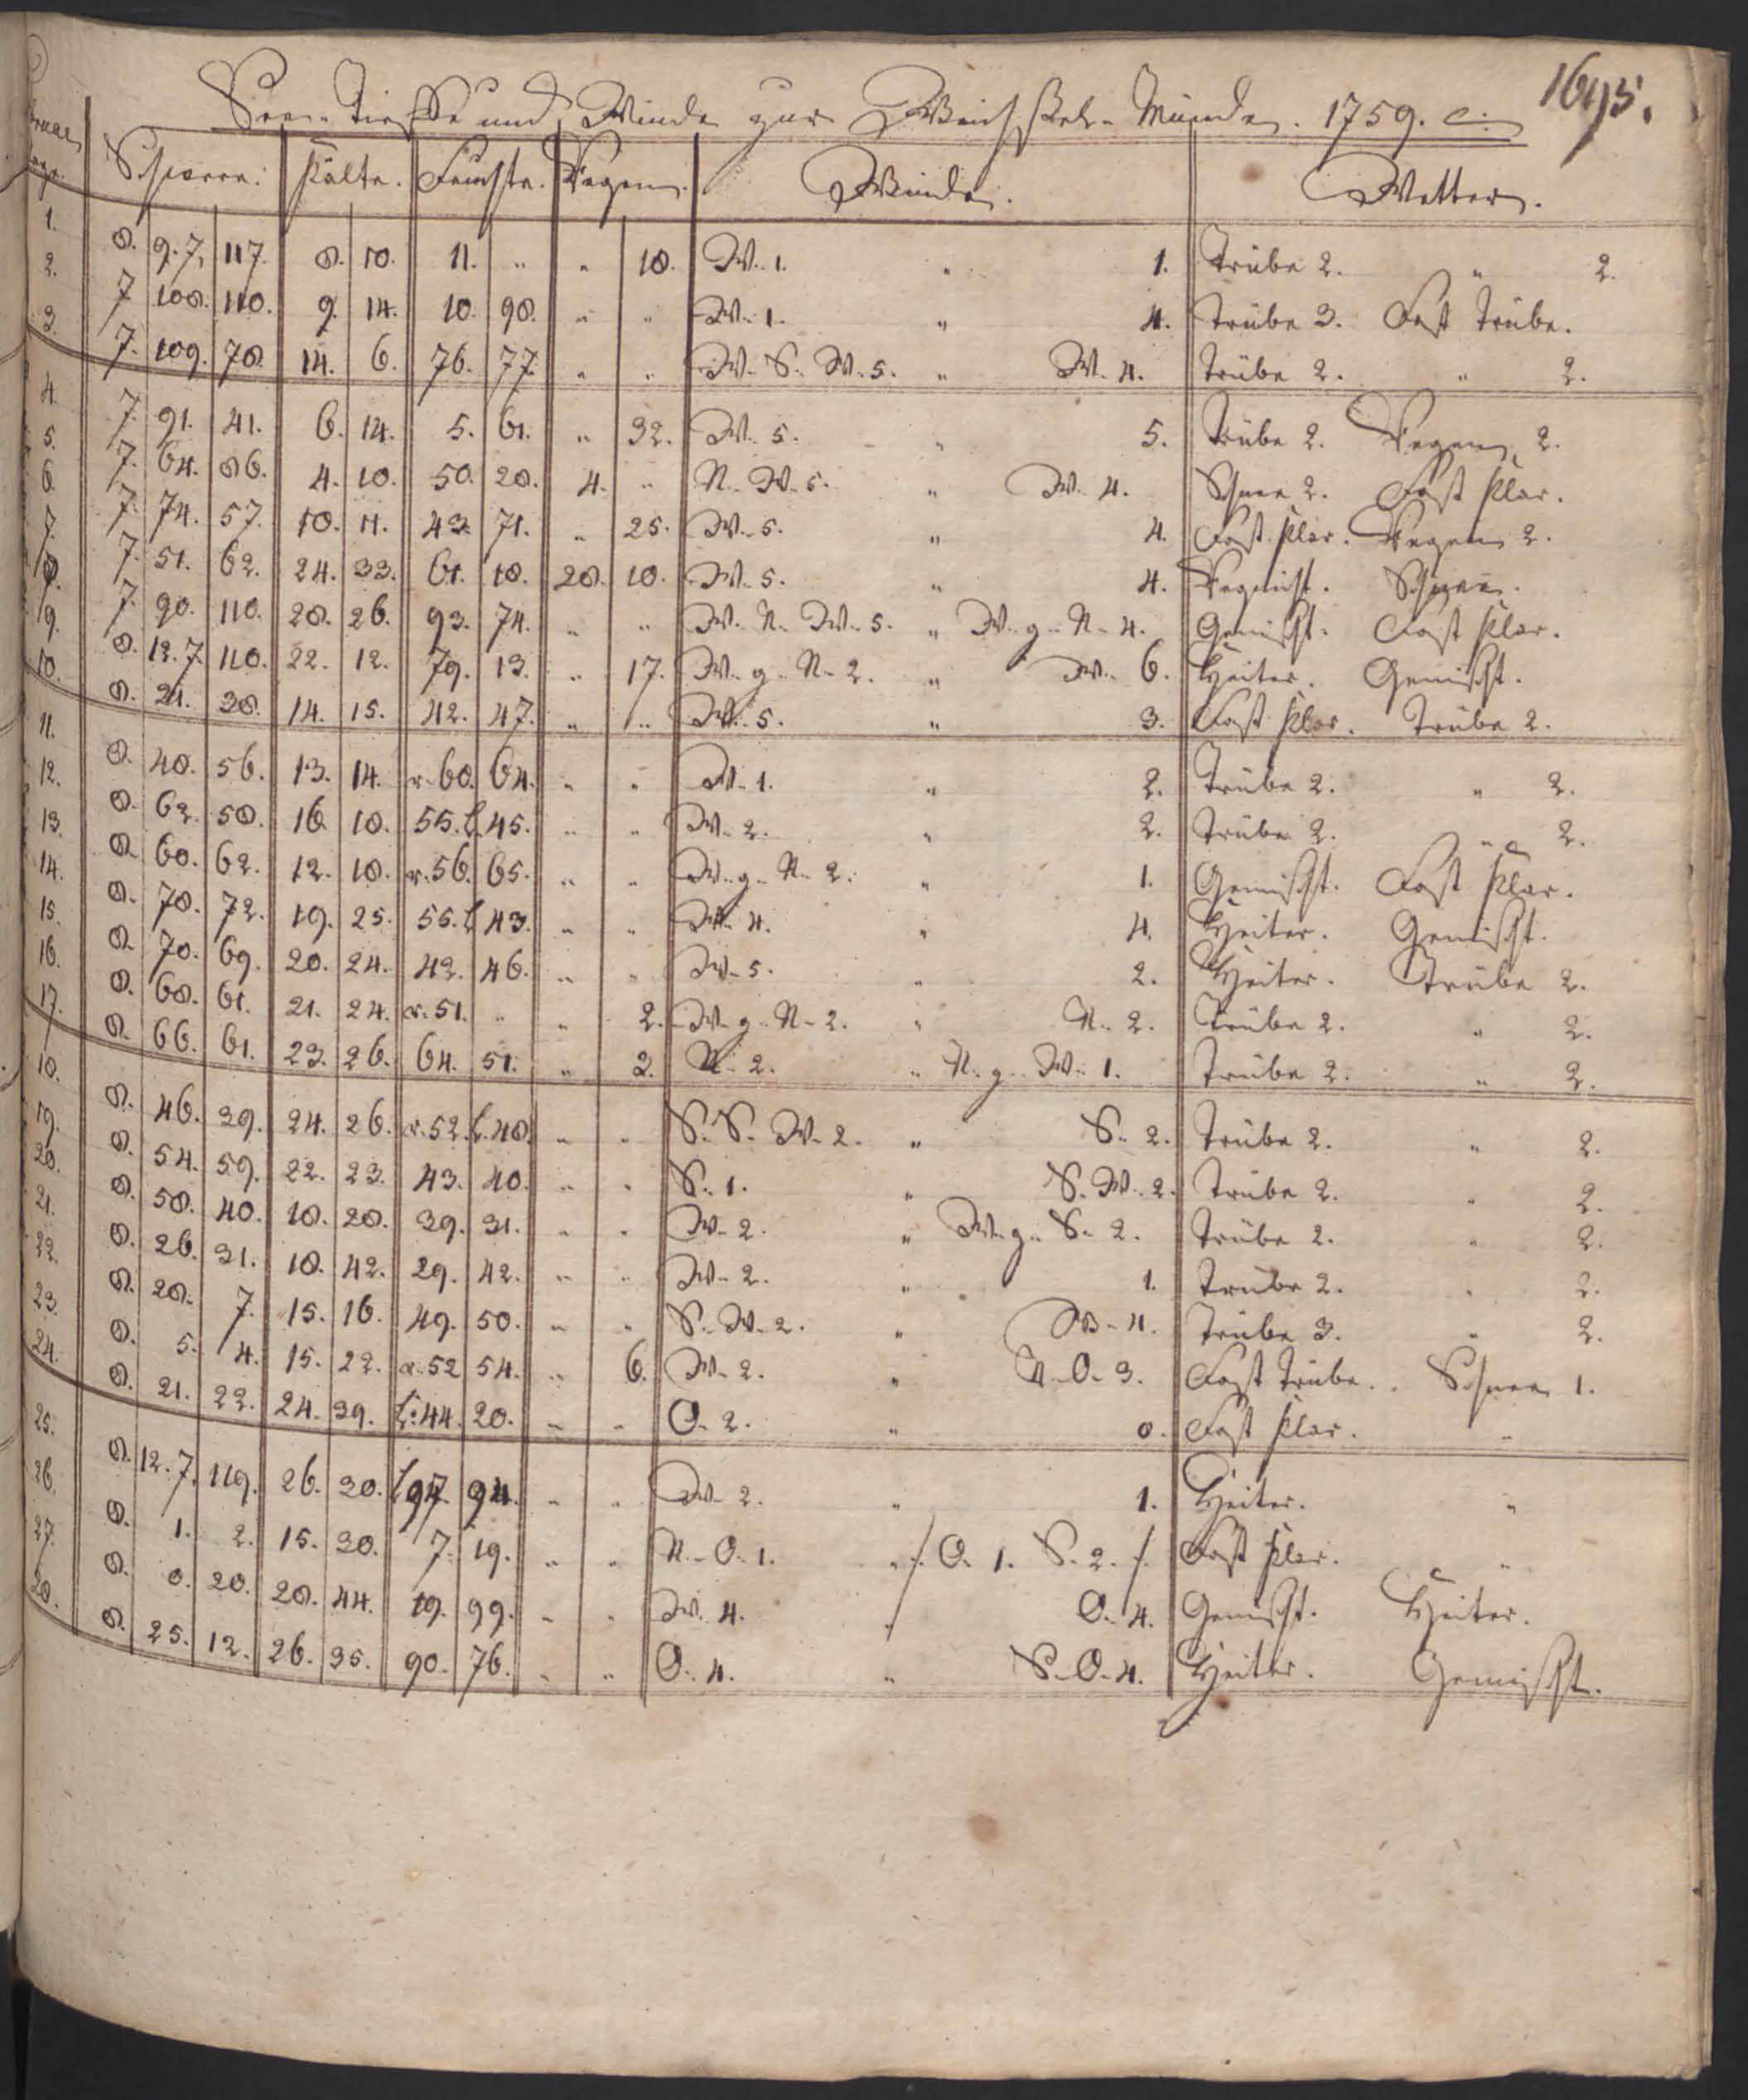 1695.
See-Tieffe und Winde zur Weichssel-Münde. 1759.
Schwere. Kälte. Feuchte. Regen. Winde. Wetter.
1. 8. 9.7. 117. 8. 10. 11. „ „ 18. W. 1. „ 1. Trübe 2. „ 2.
2. 7. 108. 110. 9. 14. 10. 98. „ „ W. 1. „ 4. Trübe 3. Fast Trübe.
3. 7. 109. 78. 14. 6. 76. 77. „ „ W. S. W. 5. „ W. 4. Trübe 2. „ 2.
4. 7. 91. 41. 6. 14. 5. 61. „ 32. W. 5. „ 5. Trübe 2. Regen 2.
5. 7. 64. 86. 4. 10. 50. 28. 4. „ N. W. 5. „ W. 4. Schnee 2. Fast klar.
6. 7. 74. 57. 10. 11. 43. 71. „ 25. W. 5. „ 4. Fast klar. Regen 2.
7. 7. 51. 62. 24. 33. 61. 18. 28. 10. W. 5. „ 4. Regnicht. Schnee.
8. 7. 90. 110. 28. 26. 93. 74. „ „ W. N. W. 5. „ W. g. N. 4. Gemischt. Fast klar.
9. 8. 12.7. 110. 22. 12. 79. 13. „ 17. W. g. N. 2. „ W. 6. Heiter. Gemischt.
10. 8. 21. 38. 14. 15. 42. 47. „ „ W. 5. „ 3. Fast klar. Trübe 2.
11. 8. 48. 56. 13. 14. r. 60. 64. „ „ W. 1. „ 2. Trübe 2. „ 2.
12. 8. 62. 58. 16. 18. 55. l. 45. „ „ W. 2. „ 2. Trübe 2. „ 2.
13. 8. 60. 62. 12. 18. r. 56. 65. „ „ W. g. N. 2. „ 1. Gemischt. Fast klar.
14. 8. 78. 72. 19. 25. 55. l. 43. „ „ W. 4. „ 4. Heiter. Gemischt.
15. 8. 70. 69. 20. 24. 42. 46. „ „ W. 5. „ 2. Heiter. Trübe 2.
16. 8. 68. 61. 21. 24. r. 51. „ „ 2. W. g. N. 2. „ N. 2. Trübe 2. „ 2.
17. 8. 66. 61. 23. 26. 64. 51. „ 2. N. 2. „ N. g. W. 1. Trübe 2. „ 2.
18. 8. 46. 39. 24. 26. r. 52. l. 48. „ „ S. S. W. 2. „ S. 2. Trübe 2. „ 2.
19. 8. 54. 59. 22. 23. 43. 40. „ „ S. 1. „ S. W. 2. Trübe 2. „ 2.
20. 8. 58. 40. 18. 20. 39. 31. „ „ W. 2. „ W. g. S. 2. Trübe 2. „ 2.
21. 8. 26. 31. 18. 42. 29. 42. „ „ W. 2. „ 1. Trübe 2. „ 2.
22. 8. 28. 7. 15. 16. 49. 50. „ „ S. W. 2. „ W. 4. Trübe 3. „ 2.
23. 8. 5. 4. 15. 22. r. 52. 54. „ 6. W. 2. „ N. O. 3. Fast Trübe. Schnee 1.
24. 8. 21. 22. 24. 39. l. 44. 20. „ „ O. 2. „ 0. Fast klar. „
25. 8. 12.7. 119. 26. 30. l. 97. 94. „ „ W. 2. „ 1. Heiter. „
26. 8. 1. 2. 15. 30. 7. 19. „ „ N. O. 1. „ /. O. 1. S. 2. /. Fast klar. „
27. 8. 0. 20. 28. 44. 19. 99. „ „ W. 4. „ O. 4. Gemischt. Heiter.
28. 8. 25. 12. 26. 35. 90. 76. „ „ O. 4. „ S. O. 4. Heiter. Gemischt.